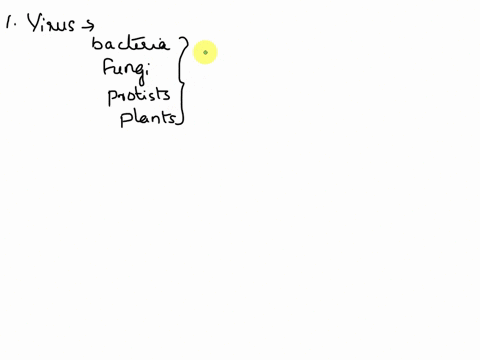 1. Virus →
bacteria
Fungi
protists
plants